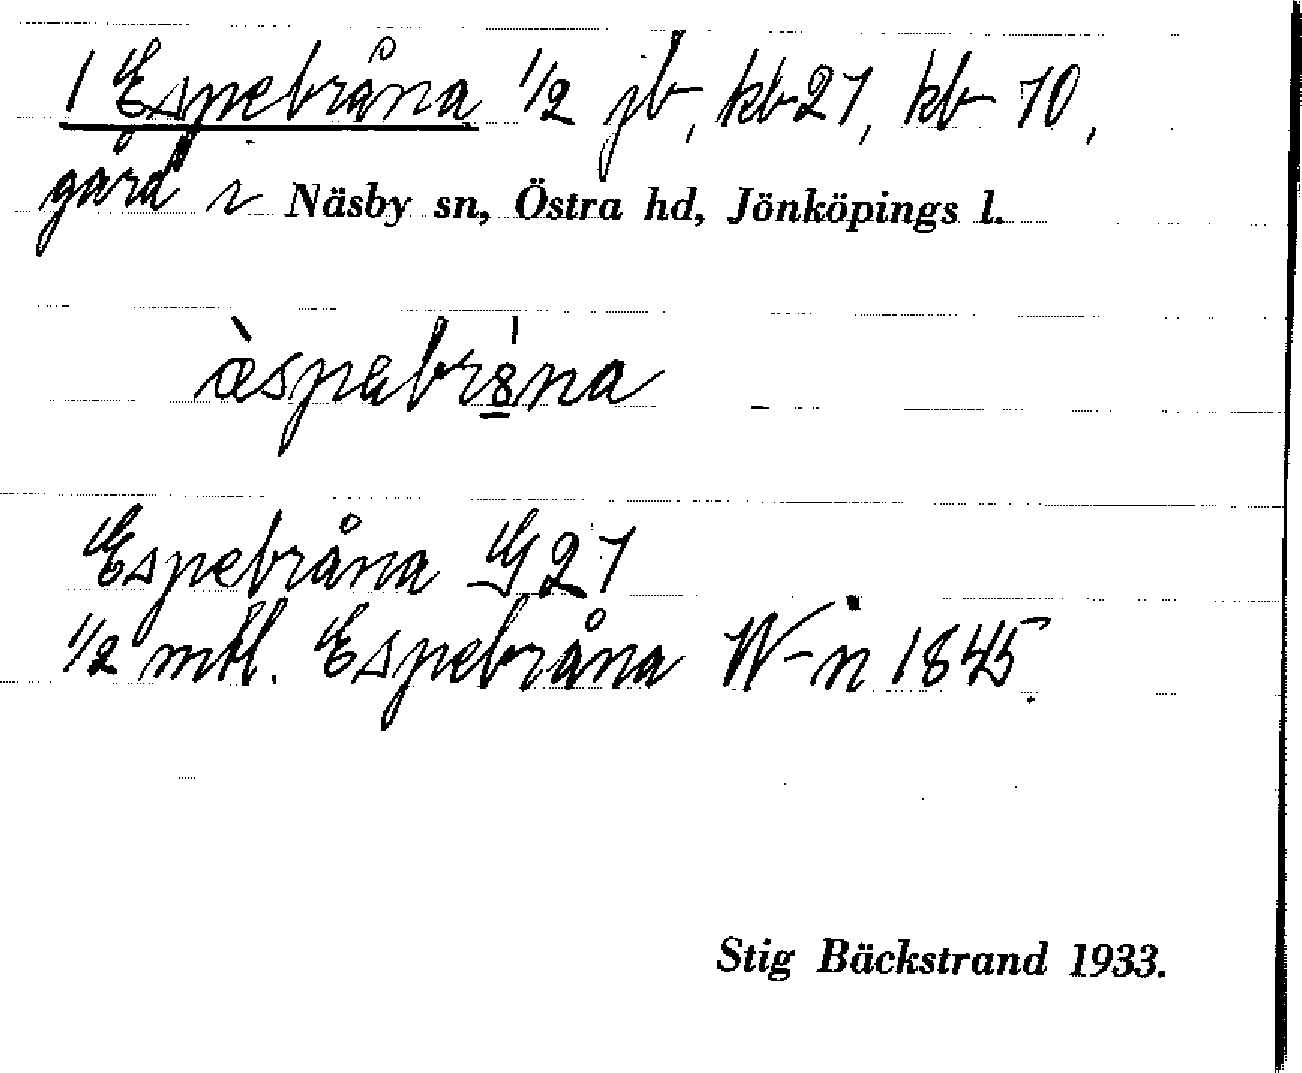 1 Espebråna 1/2 jb, kb 21, kb 10,
gård i Näsby sn, Östra hd, Jönköpings l.
Espebråna G 21
1/2 mtl. Espebråna W-n 1845.
Stig Bäckstrand 1933.